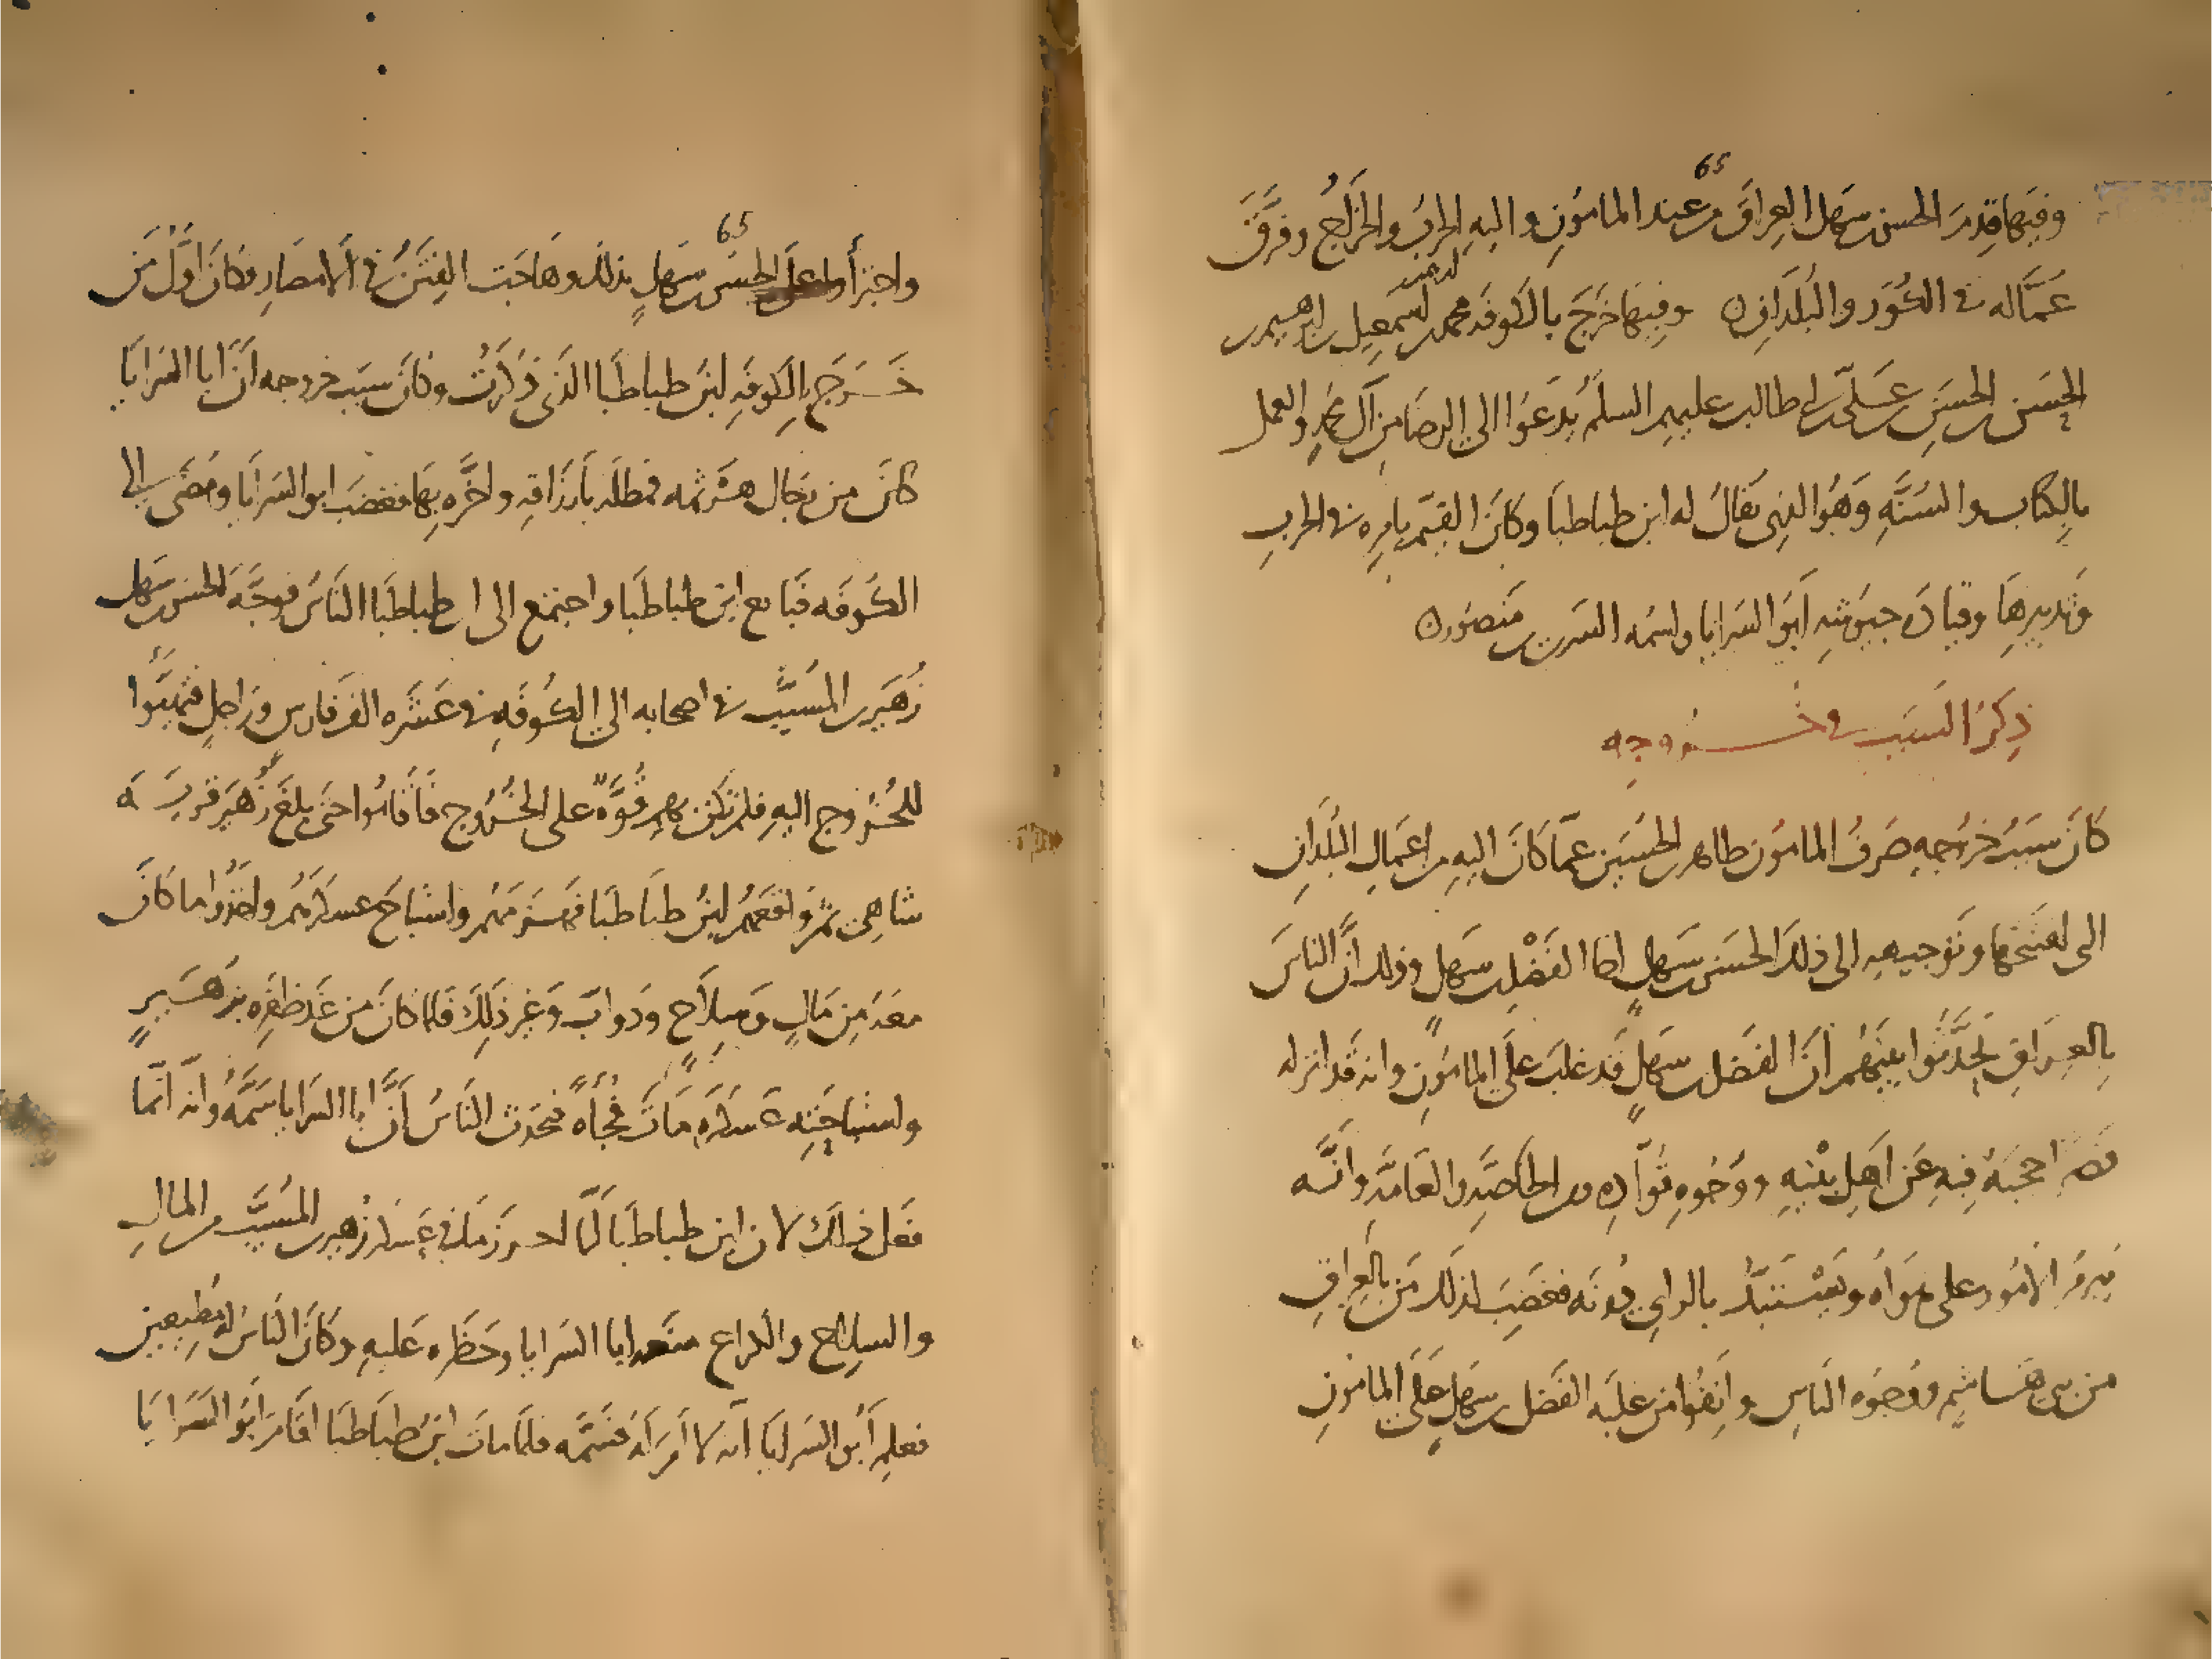 65
وفيها قدم الحسن بن سهل العراق من عند المامون واليه الحرب والخراج وفرّق
عمّاله في الكور والبلدان ه وفيها خرج بالكوفه محمد بن اسمعيل بن ابرهيم بن
الحسن بن الحسن بن علىّ بن ابى طالب عليهم السلم يدعوا الى الرضا من آل محمد والعمل
بالكتاب والسنّه وهو الذي يقال له ابن طباطبا وكان القيّم بامره في الحرب
وتدبيرها وقياده جيوشه ابو السرايا واسمه السرىّ بن منصور ه
ذكر السبب في خروجه
كان سبب خروجه صرف المامون طاهر بن الحسين عمّا كان اليه من اعمال البلدان
التى افتتحها وتوجيهه الى ذلك الحسن بن سهل اخا الفضل بن سهل وذلك انّ الناس
بالعراق تحدّثوا بينهم انّ الفضل بن سهل قد غلب على المامون وانه قد انزله
قصرا حجبه فيه عن اهل بيته ووجوه قوّاده من الخاصّه والعامّه وانّه
يبرم الامور على هواه ويستبدّ بالراي دونه فغضب لذلك من بالعراق
من بنى هاشم ووجوه الناس وانفوا من غلبه الفضل بن سهل على المامون
65
واجترأوا على الحسن بن سهل بذلك وهاجت الفتن في الامصار فكان اوّل من
خرج بالكوفه ابن طباطبا الذى ذكرت وكان سبب خروجه انّ ابا السرايا
كان من رجال هرثمه فمطله بارزاقه واخّره بها فغضب ابو السرايا ومضى الى
الكوفه فبايع ابن طباطبا واجتمع الى ابن طباطبا الناس فوجّه الحسن بن سهل
زهير بن المسيّب في اصحابه الى الكوفه في عشره الف فارس وراجل فتهيّوا
للخروج اليه فلم تكن بهم قوّة على الخروج فاقاموا حتى بلغ زهير قريه
شاهى ثم واقعهم ابن طباطبا فهزمهم واستباح عسكرهم واخذوا ما كان
معه من مال وسلاح ودوابّ وغير ذلك فلما كان من غد ظفره بزهير
واستباحته عسكره مات فجأة فتحدث الناس انّ ابا السرايا سمّه وانه انّما
فعل ذلك لان ابن طباطبا لمّا احرز ما في عسكر زهير بن المسيّب من المال
والسلاح والكراع منعه ابا السرايا وحظره عليه وكان الناس له مطيعين
فعلم ابو السرايا انه لا امر له فسمّه فلما مات ابن طباطبا اقام ابو السرايا